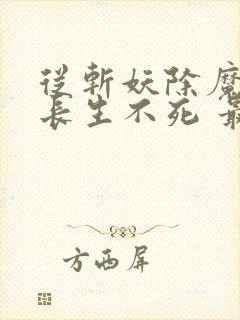 從斬妖除魔
長生不死 最
方西屏